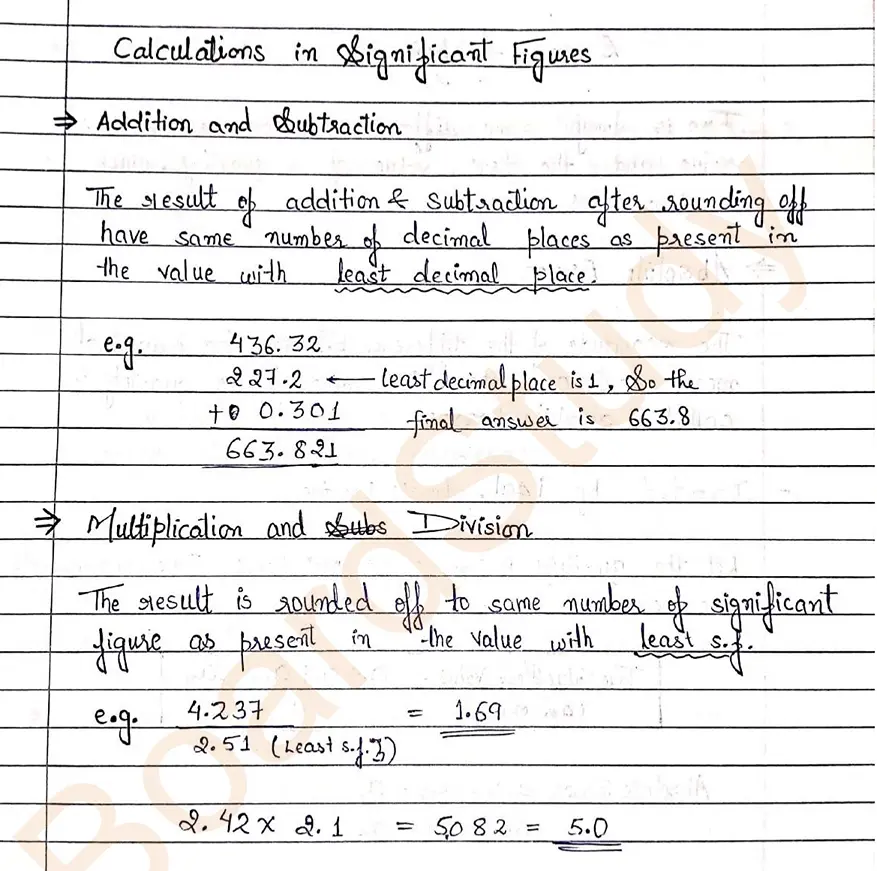 Calculations in Significant Figures
⇒ Addition and Subtraction
The result of addition & subtraction after rounding off
have same number of decimal places as present in
the value with least decimal place.
e.g. 436.32
227.2 ← least decimal place is 1, So the
+ 0.301 final answer is 663.8
663.821
⇒ Multiplication and Subs Division
The result is rounded off to same number of significant
figure as present in the value with least s.f.
e.g. 4.237 = 1.69
2.51 (Least s.f. 3)
2.42 × 2.1 = 5.082 = 5.0
BoardStudy